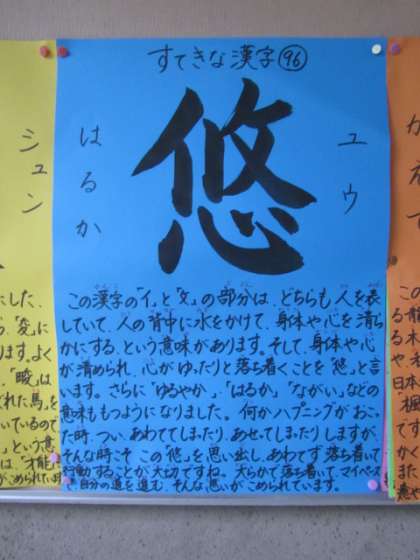 すてきな漢字 96
悠
ユウ
はるか
この漢字の「亻」と「攵」の部分は、どちらも人を表
していて、人の背中に水をかけて、身体や心を清ら
かにする、という意味があります。そして、身体や心
が清められ、心がゆったりと落ち着くことを「悠」と言
います。さらに「ゆるやか」、「はるか」、「ながい」などの
意味ももつようになりました。何かハプニングがおこっ
た時、つい、あわててしまったり、あせってしまったりしますが、
そんな時こそ この「悠」を思い出し、あわてず 落ち着いて
行動することが大切ですね。大らかで落ち着いて、マイペース
で自分の道を進む そんな思いがこめられています。
シュン